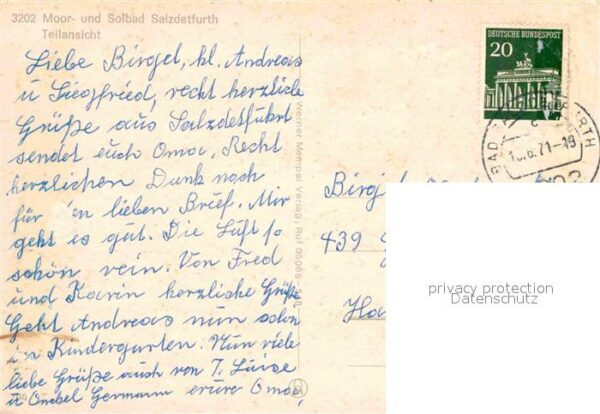 3202 Moor- und Solbad Salzdetfurth
Teilansicht
Liebe Birgel, kl. Andreas
u Siegfried, recht herzliche
Grüße aus Salzdetführt
sendet euch Omac. Recht
herzlichen Dank noch
für lieben Brief. Mir
geht es gut. Die Luft so
schön rein. Von Fred
und Karin herzliche Grüße
Geht Andreas nun schon
in Kindergarten. Nun viele
liebe Grüße auch von T. Luise
u Onckel Germann eure Omac,
Werner Mempel Verlag, Ruf 05065
DEUTSCHE BUNDESPOST
20
BAD
6.71-19
Birgel
439
Ha
privacy protection
Datenschutz